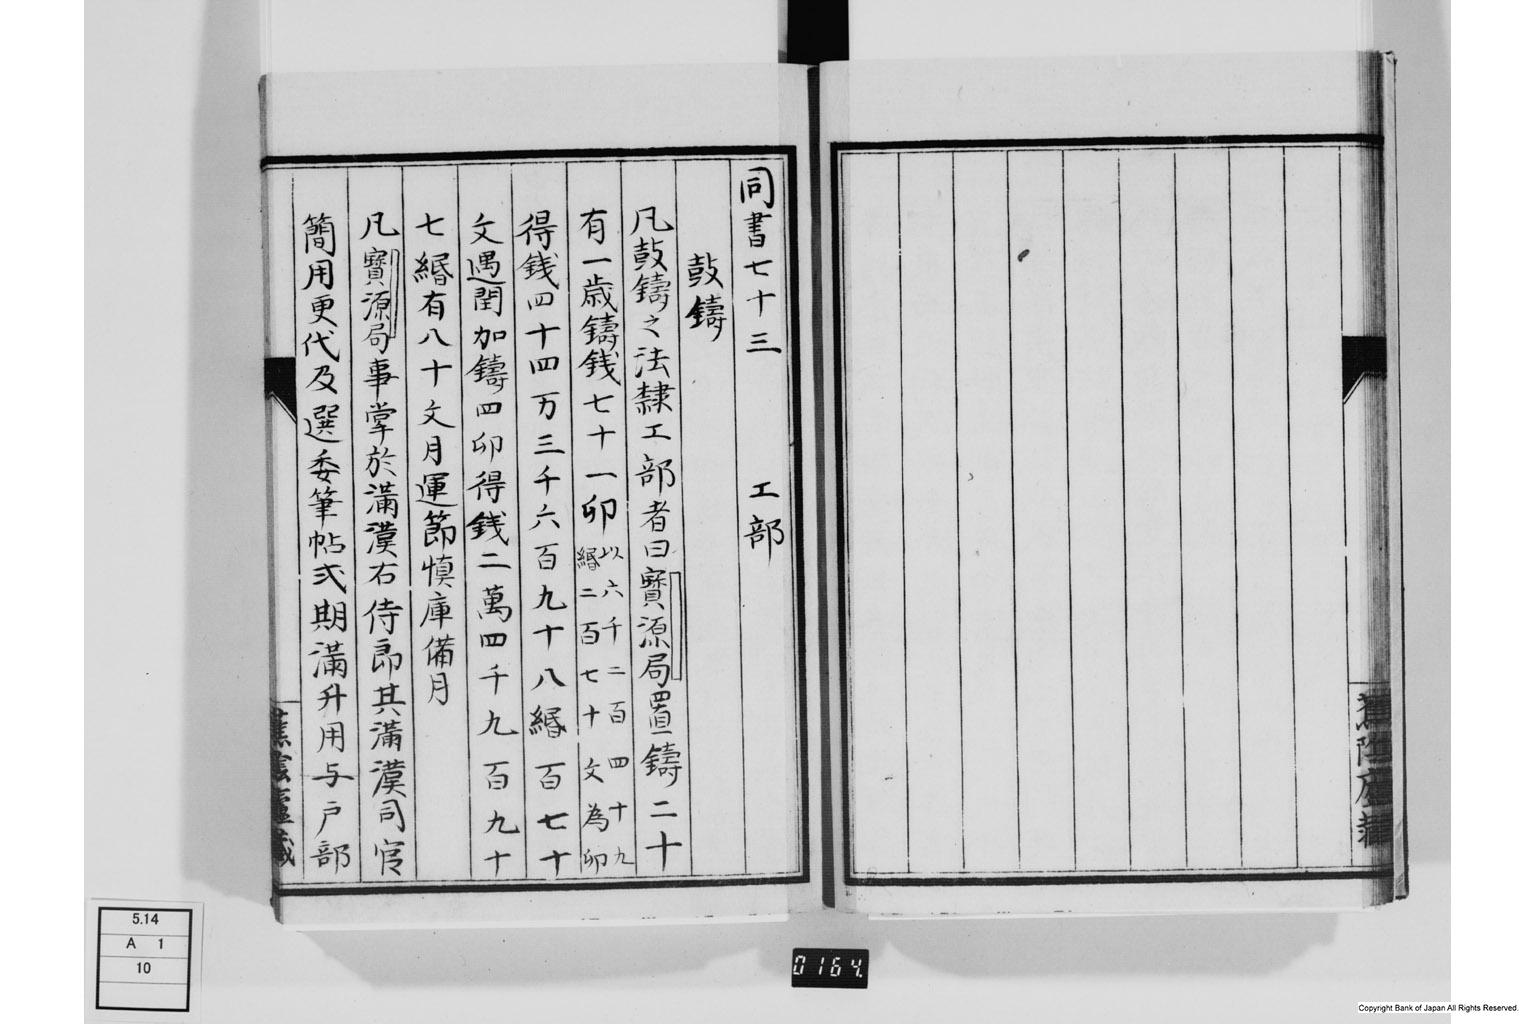 同書七十三　工部
鼓鑄
凡鼓鑄之法隷工部者曰寳源局置鑄二十
有一歳鑄銭七十一卯以六千二百四十九緡二百七十文為卯
得銭四十四万三千六百九十八緡百七十
文遇閏加鑄四卯得銭二萬四千九百九十
七緡有八十文月運節慎庫備月
凡寳源局事掌於滿漢右侍郎其滿漢司官
簡用更代及選委筆帖式期滿升用与戸部
5.14
A 1
10
0164.
Copyright Bank of Japan All Rights Reserved.